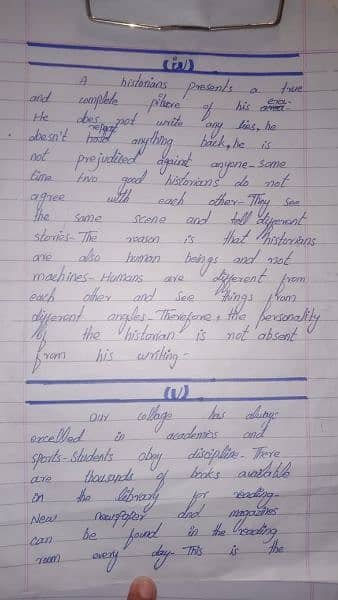 (iv)
A historians presents a true
and complete piture of his era.
He does not write any lies, he
doesn't repeat anything back, he is
not prejudited against anyone- some
time two good historians do not
agree with each other- They see
the same scene and tell different
stories- The reason is that historians
are also human beings and not
machines- Humans are different from
each other and see things from
different angles- Therefore, the personality
of the historian is not absent
from his writing-
(v)
Our collage has always
excelled in academics and
sports- Students obey discipline- There
are thousands of books available
in the library for reading-
New newspaper and magazines
can be found in the reading
room every day- This is the